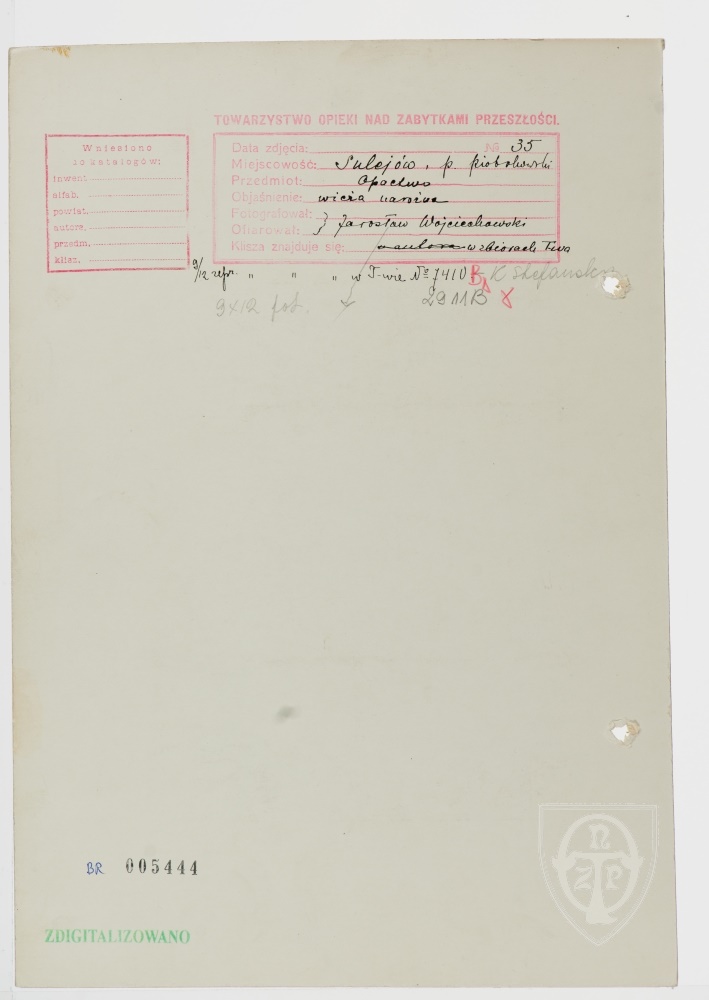 TOWARZYSTWO OPIEKI NAD ZABYTKAMI PRZESZŁOŚCI.
Wniesiono
do katalogów:
inwent.
alfab.
powiat.
autora.
przedm.
klisz.
Data zdjęcia: № 35
Miejscowość: Sulejów, p. Piotrkowski
Przedmiot: Opactwo
Objaśnienie: wieża narożna
Fotografował:
Ofiarował: } Jarosław Wojciechowski
Klisza znajduje się: u autora w zbiorach T-wa
9/12 repr. " " " w T-wie № 7410 B K Stefański
9x12 fot. 2911B
BR 005444
ZDIGITALIZOWANO
TONZP